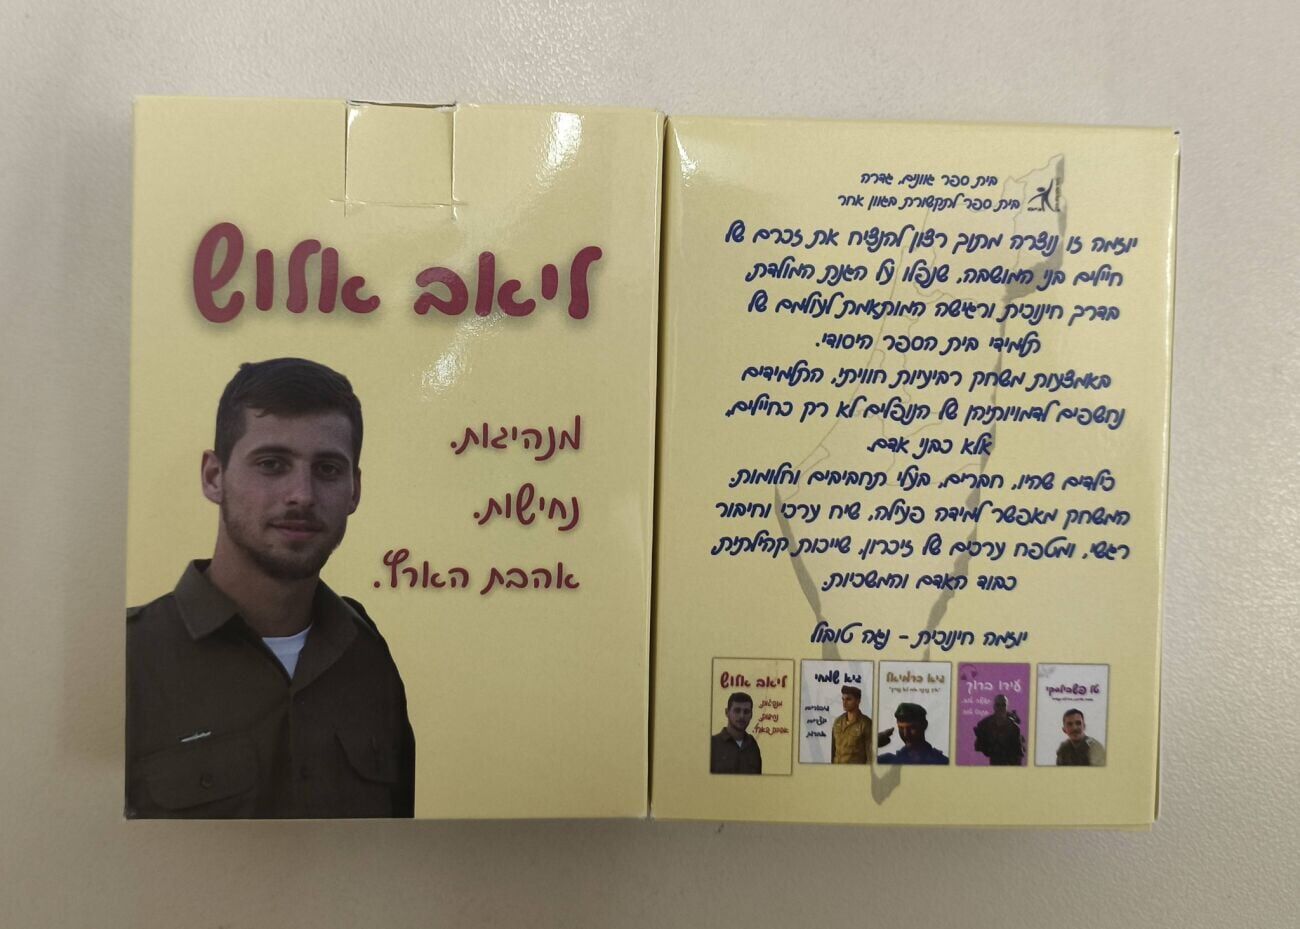 ליאב אלוש
מנהיגות.
נחישות.
אהבת הארץ.
בית ספר גוונים, גדרה
בית ספר לתקשורת בגוון אחר
יוזמה זו נוצרה מתוך רצון להנציח את זכרם של
חיילים בני המושבה, שנפלו על הגנת המולדת,
בדרך חינוכית ורגישה המותאמת לעולמם של
תלמידי בית הספר היסודי.
באמצעות משחק רביעיות חוויתי, התלמידים
נחשפים לדמויותיהן של הנופלים לא רק כחיילים,
אלא כבני אדם.
כילדים שהיו, חברים, בעלי תחביבים וחלומות.
המשחק מאפשר למידה פעילה, שיח ערכי וחיבור
רגשי, ומטפח ערכים של זיכרון, שייכות קהילתית,
כבוד האדם והמשכיות.
יוזמה חינוכית - נגה טובול
ליאב אלוש
מנהיגות.
נחישות.
אהבת הארץ.
גיא שמחי
גיא כרמיאל
עידו ברוך
טל פשבילסקי